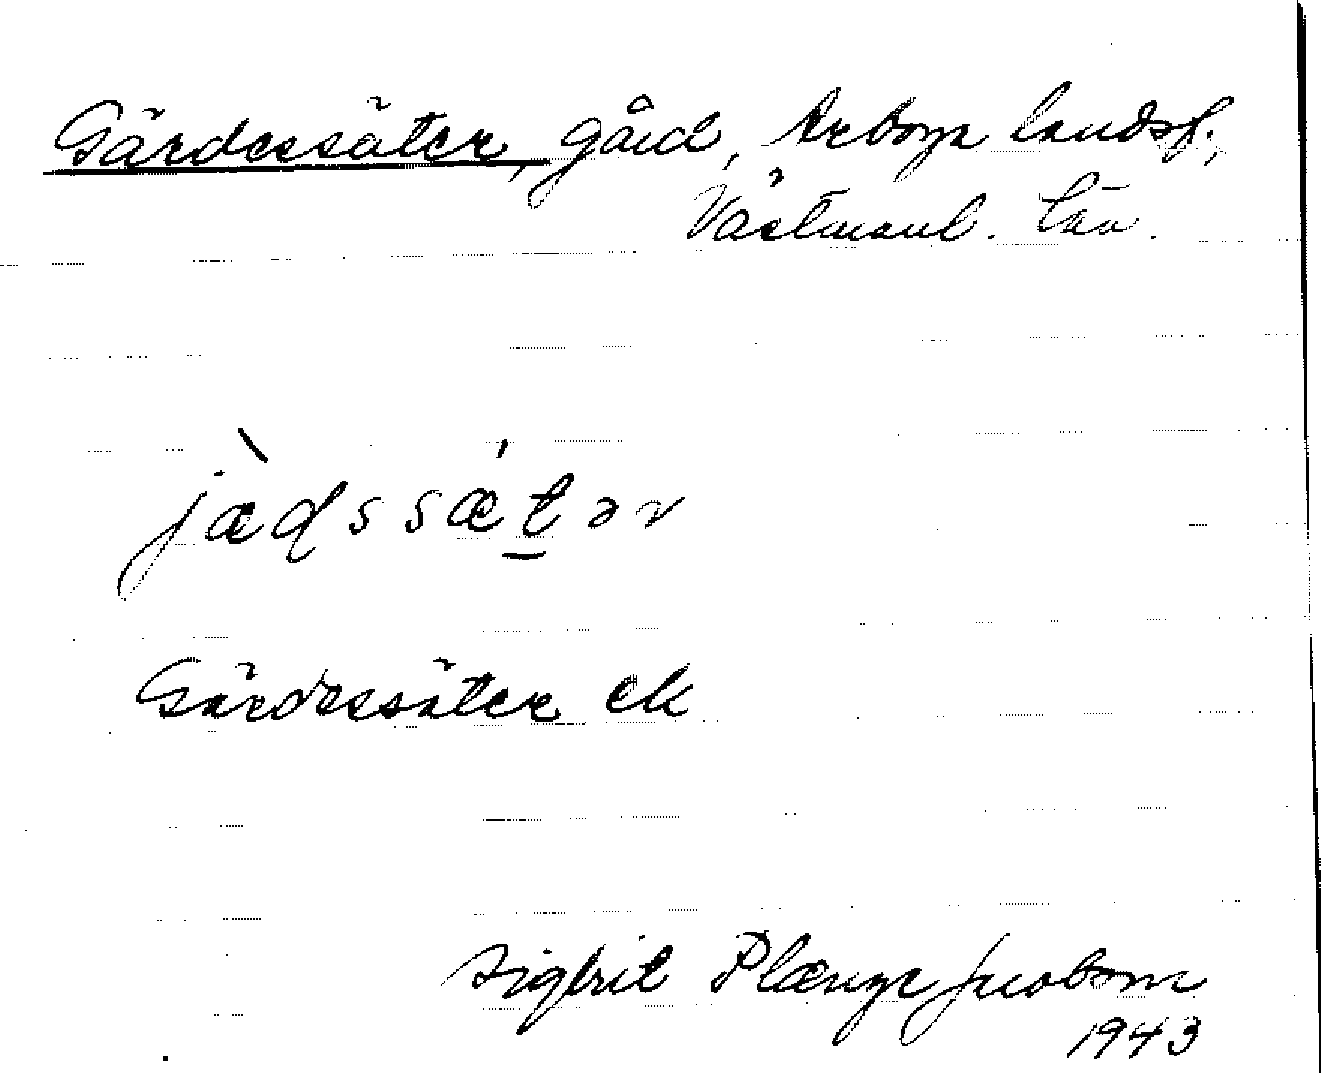 Gärdessäter, gård, Arboga landsf.,
Västmanl. län.
jæ̀ɖssǽtər
Gärdessäter ek
Sigbrit Plænge Jacobson
1943